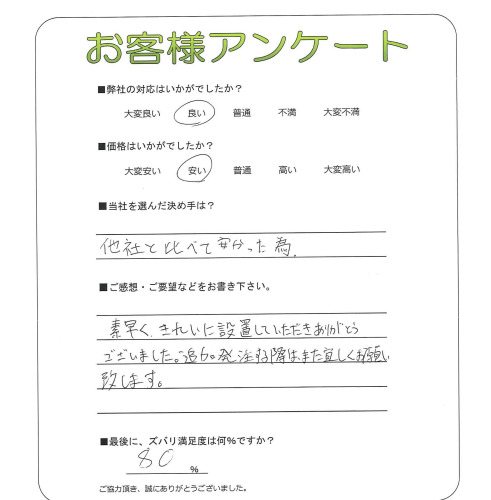 お客様アンケート
■弊社の対応はいかがでしたか？
大変良い 良い 普通 不満 大変不満
■価格はいかがでしたか？
大変安い 安い 普通 高い 大変高い
■当社を選んだ決め手は？
他社と比べて安かった為.
■ご感想・ご要望などをお書き下さい。
素早く、きれいに設置していただきありがとう
ございました。追加発注する際はまた宜しくお願い
致します。
■最後に、ズバリ満足度は何％ですか？
80 %
ご協力頂き、誠にありがとうございました。